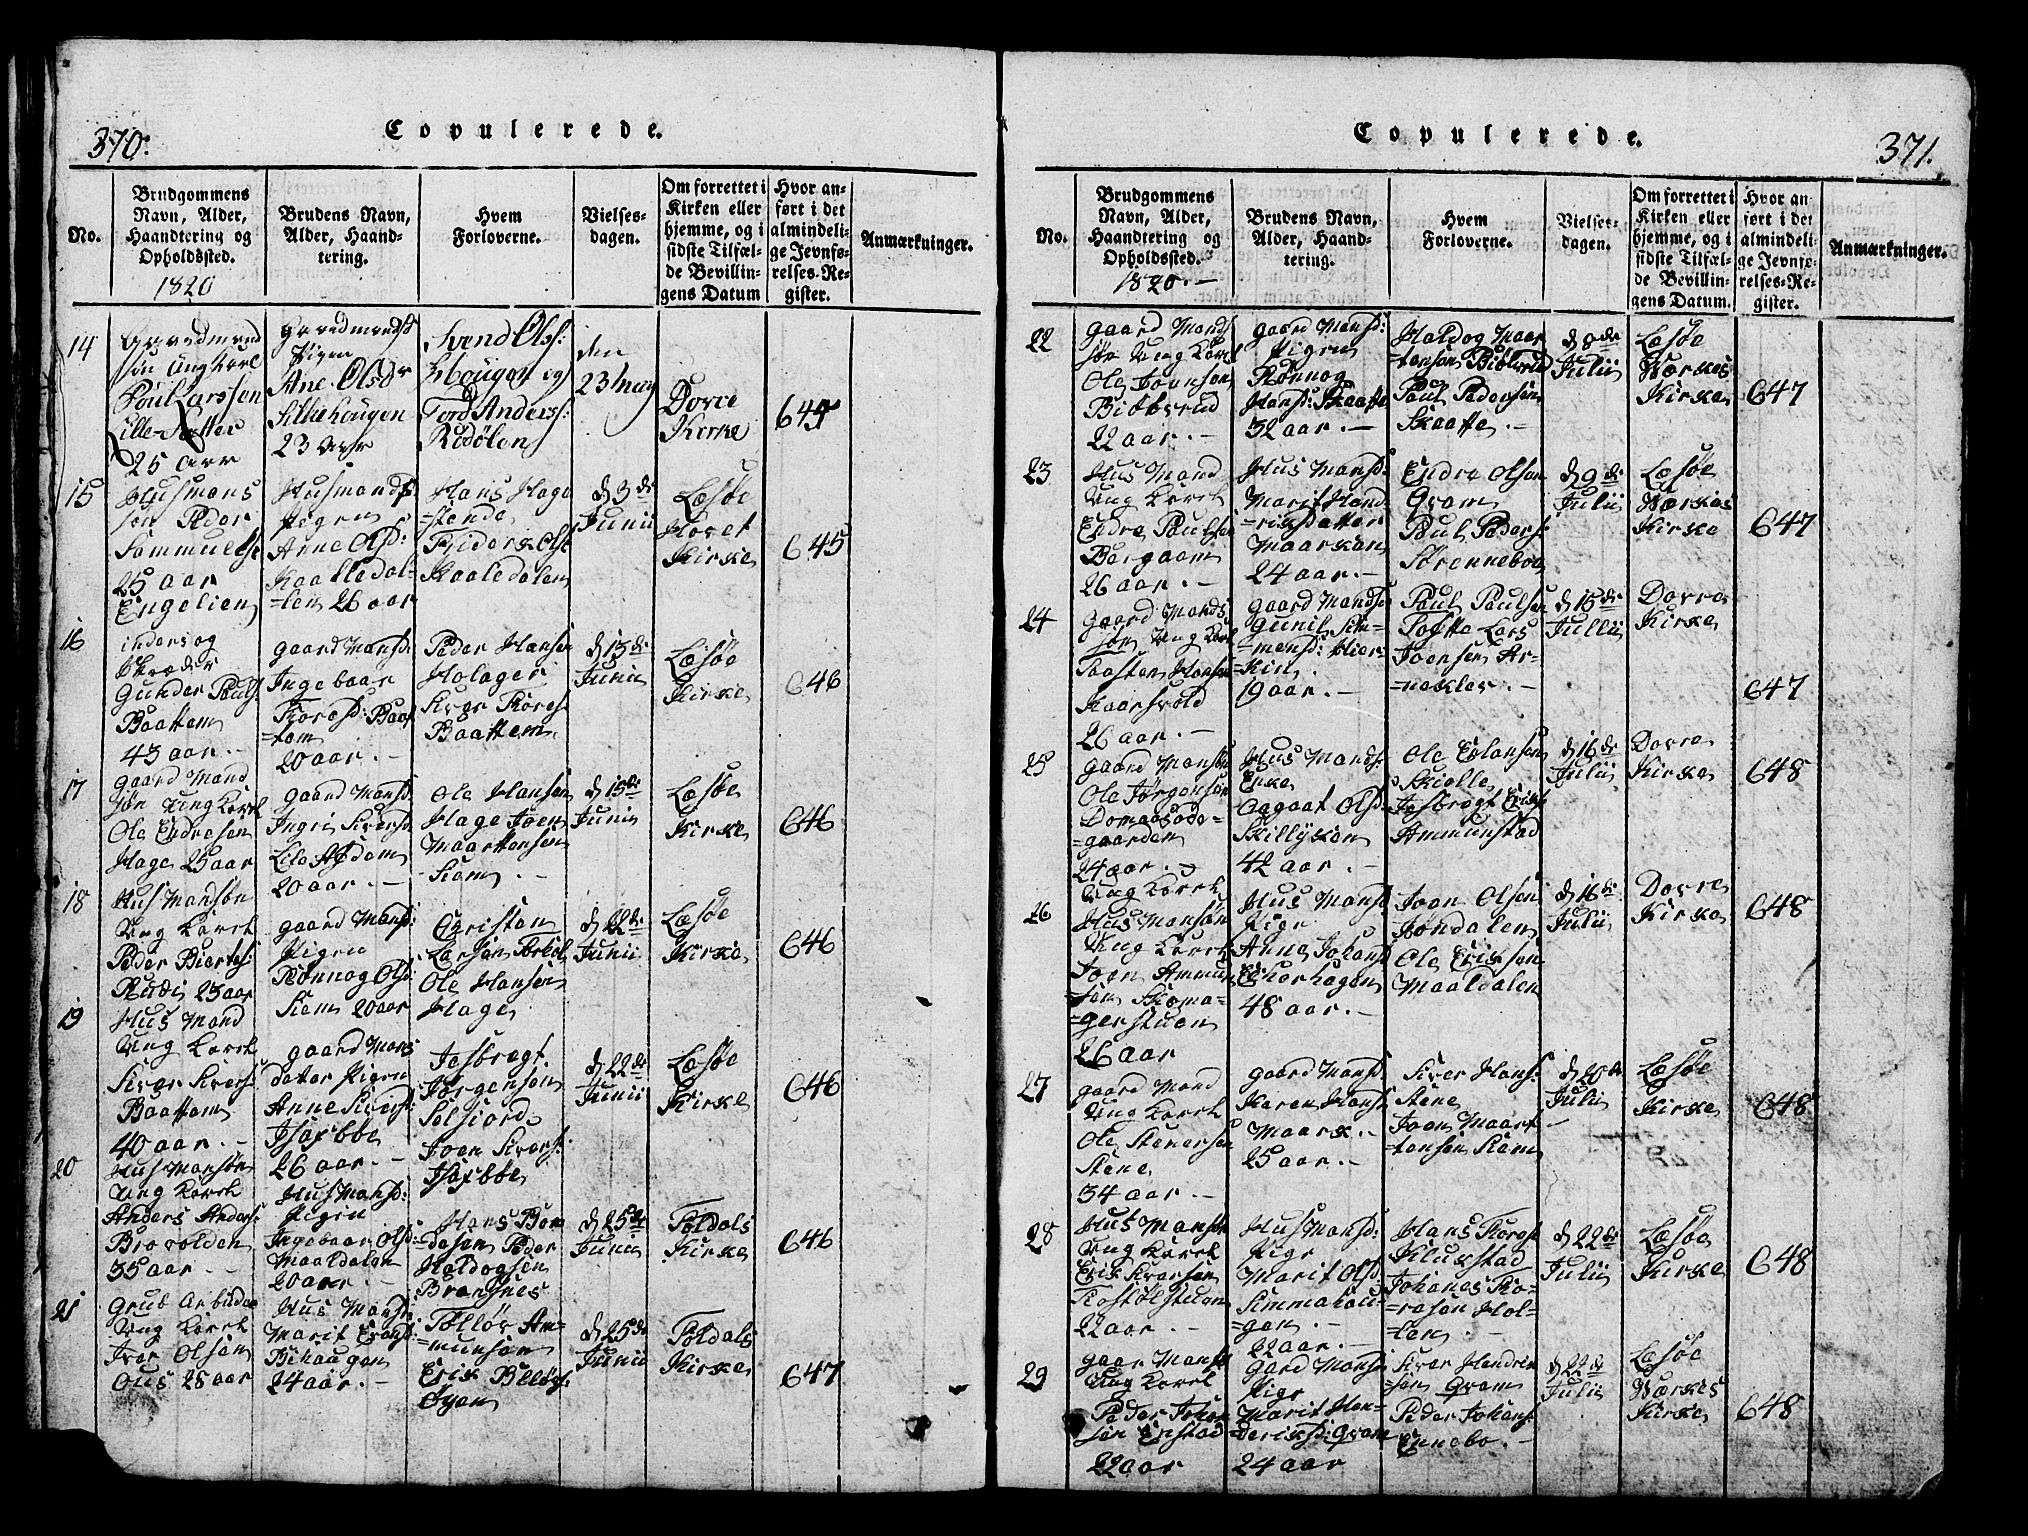 370.
Copulerede.
No.
Brudgommens
Navn, Alder,
Haandtering og
Opholdssted.
1820
Brudens Navn,
Alder, Haand-
tering.
Hvem
Forloverne.
Vielses-
dagen.
Om forrettet i
Kirken eller
hjemme, og i
sidste Tilfæl-
de Bevillin-
gens Datum
Hvor an-
ført i det
almindeli-
ge Jevnfø-
relses-Re-
gister.
Anmærkninger.
14
søn Ung Karl
Poul Larssen
Lille-Sætter
25 Aar
Pigen
Ane Olsdr
Silkehougen
23 Aar
Svend Olss:
Hougen og
Tord Anderss:
Kidølen
den
23 May
Dovre
Kirke
645
15
Husmans
søn Peder
Sammuelss
25 aar
Engelien
Husmands
Pigen
Anne Olsd:
Kaalledal-
=len 26 aar
Hans Hage
=stande
Friderik Ols:
Kaaledalen
d 3de
Junii
Læsøe
Hovet
Kirke
645
16
inders og
Skræder
Gunder Pauls:
Baattem
43 aar. -
gaard Mansd:
Ingebaar
Torosd: Baat
=tem
20 aar. -
Peder Hansen
Holager
Siver Tores:
Baattem
d 13de
Junii
Læsøe
Kirke
646
17
gaard Mand
søn Ung Karl
Ole Endresen
Hage 25 aar
gaard Mansd:
Ingri Siversd:
Lile
20 aar. -
Ole Hansen
Hage Joen
Maartensen
Kiem. -
d 15de
Junii
Læsøe
Kirke
646
18
Hus Mansøn
Ung Karl
Peder Biørtes:
Rudi 23 aar
gaard Mansd:
Pigen
Rønnog Olsd:
Kiem 20 aar
Christen
Larsen
Ole Hansen
Hage
d 22de
Junii
Læsøe
Kirke
646
19
Hus Mand
Ung Karl
Siver Sivers:
Baattem
40 aar. -
gaard Mans
datter Pigen
Anne Siversd:
26 aar. -
Jørgensen
Selsiord
Joen Sivers:
d 22de
Junii
Læsøe
Kirke
646
20
Hus Mansøn
Ung Karl
Anders Anders:
Brovolden
35 aar. -
Hus Mansd:
Pigen
Ingebaar Olsd:
Maaldalen
20 aar. -
Hans Bon
=desen Peder
Haldogsen
Bransnes
d 25de
Junii
Foldals
Kirke
646
21
Grub Arbeider
Ung Karl
Iver Olsen
Ous 28 aar
Hus Mansd:
Marit
24 aar. -
Am=
=munsen
Erik
Øyen
d 25de
Junii
Foldals
Kirke
647
371.
Copulerede.
No.
Brudgommens
Navn, Alder,
Haandtering og
Opholdssted.
1820. -
Brudens Navn,
Alder, Haand-
tering.
Hvem
Forloverne.
Vielses-
dagen.
Om forrettet i
Kirken eller
hjemme, og i
sidste Tilfæl-
de Bevillin-
gens Datum.
Hvor an
ført i det
almindeli-
ge Jevnfø-
relses-Re-
gister.
Anmærkninger.
22
gaard Mands
søn Ung Karl
Ole Joensen
22 aar. -
gaard Mansd:
Pigen
Rønnog
Hansd: Skaatte
32 aar. -
Haldog Maar
tensen
Paul Pedersen
Skaatte. -
d 8de
Julii
Læsøe
Værkes
Kirke
647
23
Hus Mand
Ung Karl
Endre Paulsen
Bergaam
26 aar. -
Hus Mansd:
Marit Hend
=riksdatter
Maarken
24 aar. -
Endre Olsen
Gram
Paul Peders:
Sørennebo
d 9de
Julii
Læsøe
Værkes
Kirke
647
24
gaard Mands
søn Ung Karl
Taasten Hansen
26 aar. -
gaard Mansd:
Gunil Sim=
=mensd: Hier=
=kin.
19 aar. -
Paul Paulsen
Tofte Lars
Joensen Ar-
=nekler. -
d 15de
Julii
Dovre
Kirke
647
25
gaard Mansøn
Ole Jørgensen
=gaarden
24 aar. -
Hus Mands:
Enke
Aagaat Olsd:
42 aar. -
Ole Erlansen
Skielle
Ammunstad
d 16de
Julii
Dovre
Kirke
648
26
Ung Karl
Hus Mansøn
Ung Karl
Joen Ammun
=sen Skoma=
=gerstuen
26 aar
Hus Mansd:
Pige
Anne Johansd:
48 aar. -
Joen Olsen
Jøndalen
Ole Eriksen
Maaldalen
d 16de
Julii
Dovre
Kirke
648
27
gaard Mand
Ung Karl
Ole Stenersen
Stene
34 aar. -
gaard Mansd:
Karen Hans:
Maark. -
25 aar. -
Siver Hans:
Stene
Joen Maart
=tensen Kiem
d 20de
Julii
Læsøe
Kirke
648
28
Hus Mansøn
Ung Karl
Erik Iversen
22 aar. -
Hus Mansd:
Pige
Marit Olsd:
=gen. -
22 aar. -
Hans Toros:
Klukstad
Johanes To=
=rosen Hol=
=ten. -
d 22de
Julii
Læsøe
Kirke
648
29
gaar Mans:
Ung Karl
Peder Johan
søn Enstad
22 aar
gard Mansd:
Pige
Marit Hen=
deriksd: Gram
24 aar
Siver Hendrik
=søn Gram
Peder Johans:
Ennebo. -
d 22de
Julii
Læsøe
Værkes
Kirke
648